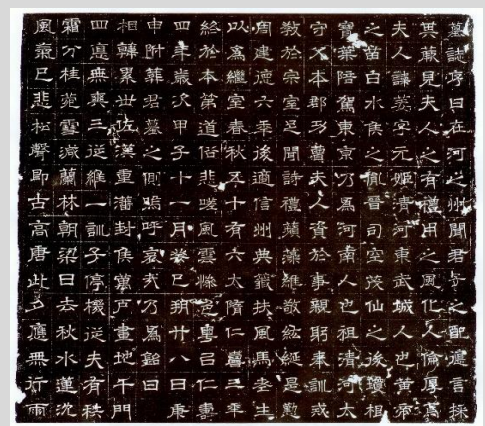 墓誌序曰在河之州聞君子之配邇言採
其蘋見夫人之有禮用之風化人倫厚焉
夫人諱善字元姬清河東武城人也黃帝
之苗白水侯之胤晉司空茂仙之後瓊相
寶葉陪駕東京乃爲河南人也祖清河太
守父本郡功曹夫人資於事親躬奉訓戒
教於宗室足聞詩禮蘋藻雍敬紘綖是勤
周建德六年後適信州典籤扶風馬老生
以爲繼室春秋五十有六大隋仁壽三年
終於本第道俗悲嗟風雲慘色粵㠯仁壽
四年歲次甲子十一月癸巳朔廿八日庚
申附葬君墓之側嗚呼哀哉乃爲銘曰
相韓累世佐漢重封侯萬戶畫地千門
四德無爽三從維一訓子停機從夫有秩
霜分桂苑雪滅蘭林朝梁日去秋水蓮沈
風已悲松聲即古高唐此夕應無行雨